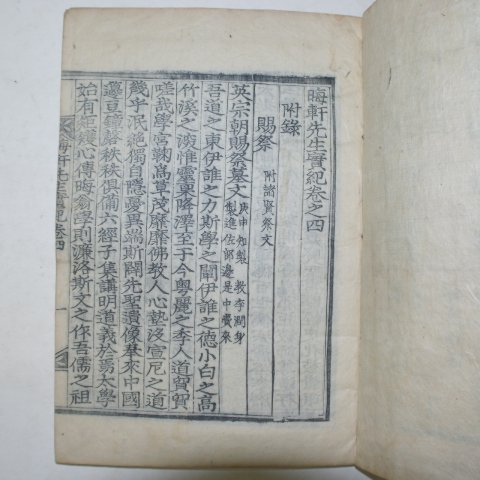 晦軒先生實紀卷之四
附錄
賜祭 附諸賢祭文
英宗朝賜祭墓文 庚申知製教李潤身
製進佐郞邊是中賫來
吾道之東伊誰之力斯學之闡伊誰之德小白之高
竹溪之淡惟靈東降澤至于今粤麗之季人道貿貿
嗟我學宮鞠爲草茂靡靡佛教人心熟沒宣尼之道
幾乎泯絶獨自隱憂異端斯闢先聖遺像摹來中國
籩豆鐘磬秩秩俱備六經子集講明道義於焉太學
始有矩矱心傳晦翁學則濂洛斯文之作吾儒之祖
晦軒先生實紀卷四
一